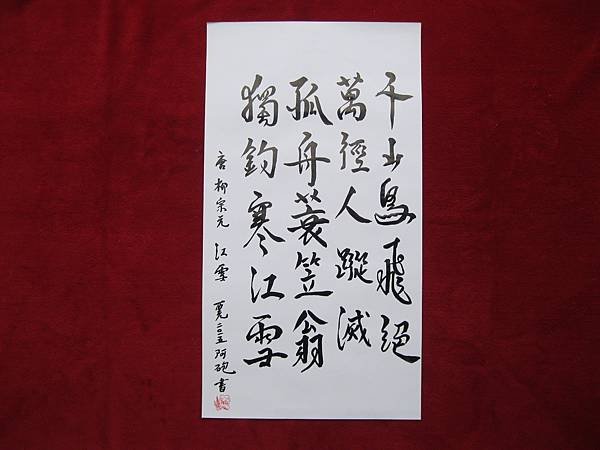 千山鳥飛絕
萬徑人蹤滅
孤舟蓑笠翁
獨釣寒江雪
唐柳宗元 江雪 二〇一五阿砲書